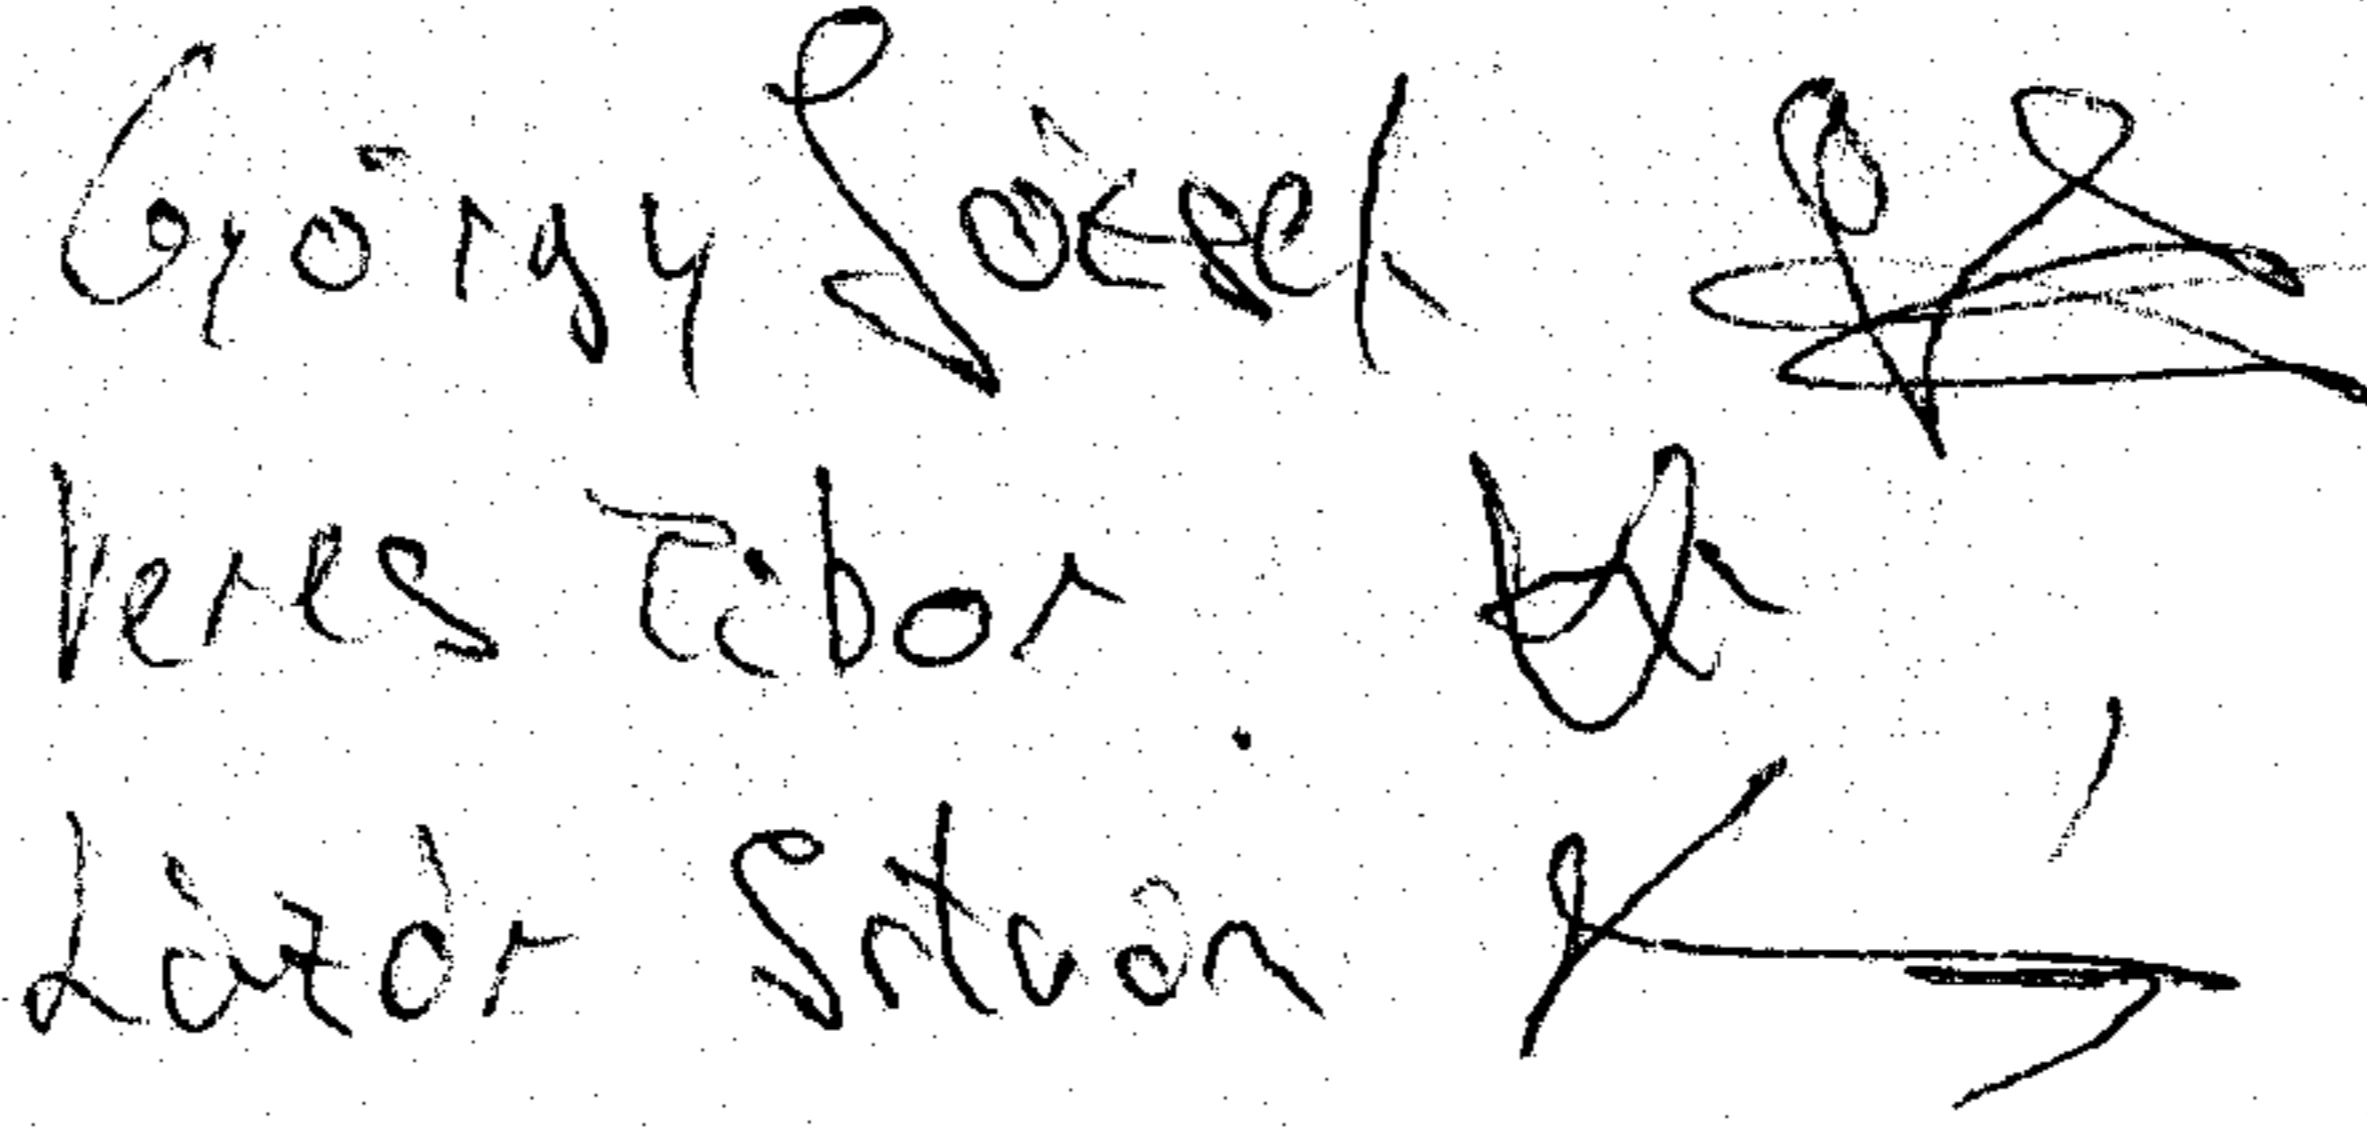 György József
Veres Tibor
Lázár István